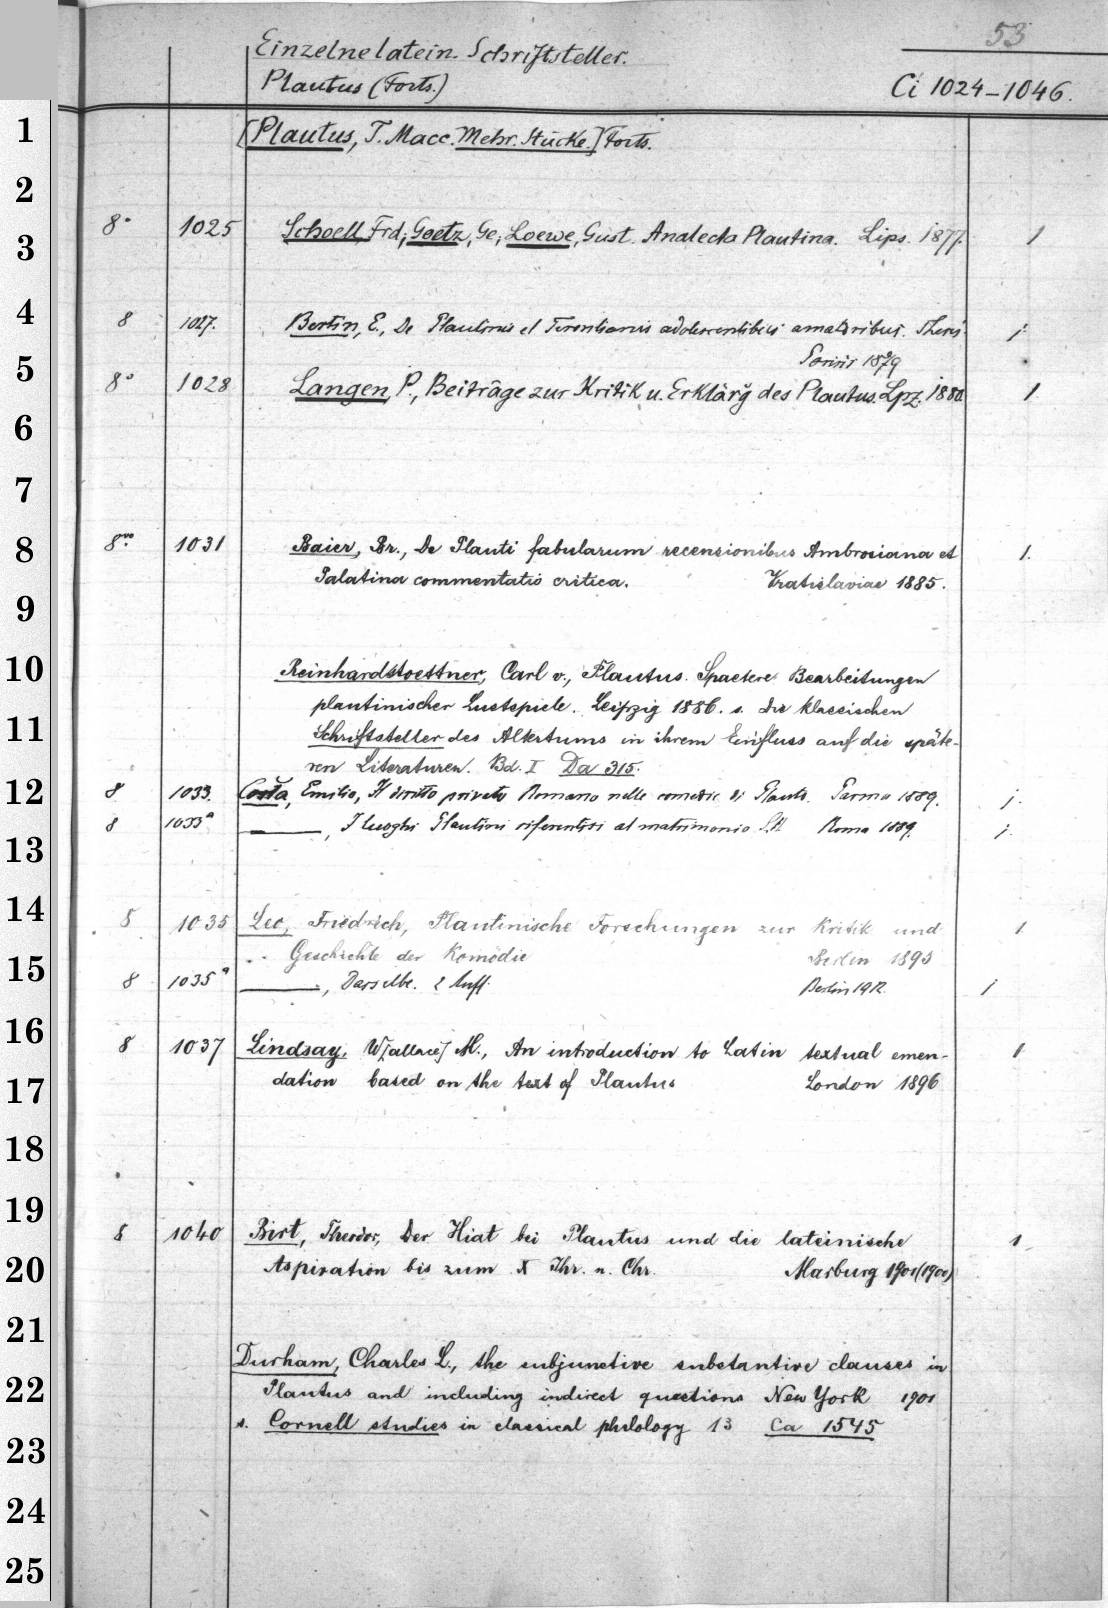 53
Einzelne latein. Schriftsteller.
Plautus (Forts.)
Ci 1024-1046.
1
[Plautus, T. Macc. Mehr. Stücke.] Forts.
2
8° 1025 Schoell, Frd; Goetz, Ge; Loewe, Gust. Analecta Plautina. Lips. 1877. 1
3
4
8 1027. Bertin, E., De Plautinis et Terentianis adolescentibus amatoribus. Thesis. j.
Parisis 1879
5
8° 1028 Langen, P., Beiträge zur Kritik u. Erklärg des Plautus. Lpz. 1880. 1.
6
7
8
8vo 1031 Baier, Br., De Plauti fabularum recensionibus Ambrosiana et 1.
Palatina commentatio critica. Vratislaviae 1885.
9
10
Reinhardstoettner, Carl v., Plautus. Spaetere Bearbeitungen
plautinischer Lustspiele. Leipzig 1886. s. Die klassischen
11
Schriftsteller des Altertums in ihrem Einfluss auf die späte-
ren Literaturen. Bd. I Da 315.
12
8 1033. Costa, Emilio, Il diritto privato Romano nelle comedie di Plauto. Parma 1889. j.
8 1033a ———, I luoghi Plautini riferentisi al matrimonio Roma 1889. j.
13
14
8 1035 Leo, Friedrich, Plautinische Forschungen zur Kritik und 1
Geschichte der Komödie Berlin 1895
15
8 1035a ———, Dasselbe. 2 Aufl. Berlin 1912. j
16
8 1037 Lindsay, W[allace] M., An introduction to Latin textual emen- 1
dation based on the text of Plautus London 1896
17
18
19
8 1040 Birt, Theodor, Der Hiat bei Plautus und die lateinische 1
20
Aspiration bis zum X Jhr. n. Chr. Marburg 1901(1900)
21
Durham, Charles L., the subjunctive substantive clauses in
22
Plautus and including indirect questions New York 1901
s. Cornell studies in classical philology 13 Ca 1545
23
24
25